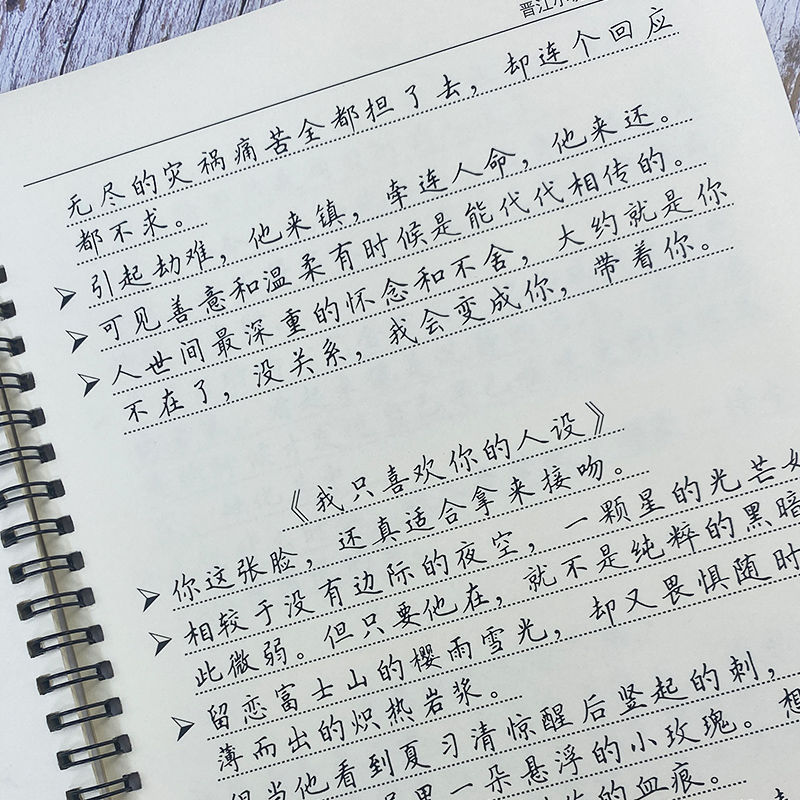 晋江小
无尽的灾祸痛苦全都担了去，却连个回应
都不求。
引起劫难，他来镇，牵连人命，他来还。
可见善意和温柔有时候是能代代相传的。
人世间最深重的怀念和不舍，大约就是你
不在了，没关系，我会变成你，带着你。
《我只喜欢你的人设》
你这张脸，还真适合拿来接吻。
相较于没有边际的夜空，一颗星的光芒如
此微弱。但只要他在，就不是纯粹的黑暗
留恋富士山的樱雨雪光，却又畏惧随时
薄而出的炽热岩浆。
但当他看到夏习清惊醒后竖起的刺，
里一朵悬浮的小玫瑰。想
的血痕。